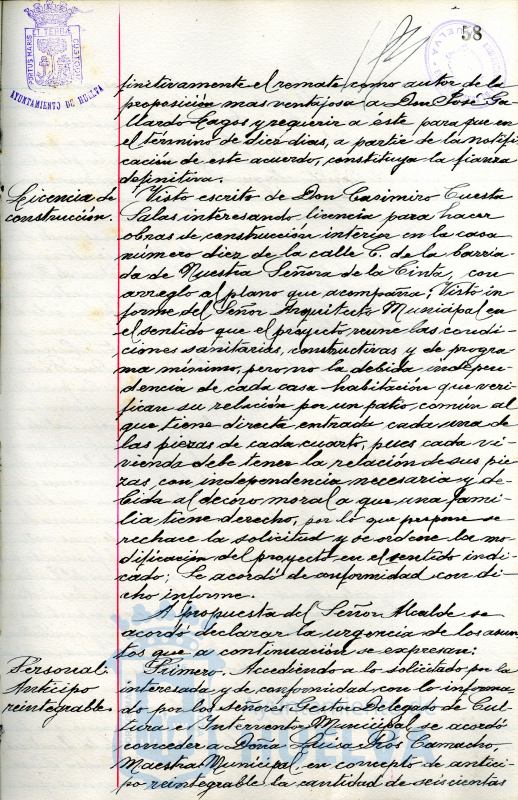 58
PORTUS MARIS ET TERRÆ CUSTODIA
AYUNTAMIENTO DE HUELVA
finitivamente el remate como autor de la
proposición mas ventajosa a Don José Ga-
llardo Lagos y requerir a éste para que en
el término de diez dias, a partir de la notifi-
cación de este acuerdo, constituya la fianza
definitiva.
Licencia de
construcción.
Visto escrito de Don Casimiro Cuesta
Salas interesando licencia para hacer
obras de construcción interior en la casa
número diez de la calle C. de la barria-
da de Nuestra Señora de la Cinta, con
arreglo al plano que acompaña; Visto in-
forme del Señor Arquitecto Municipal en
el sentido que el proyecto, reune las condi-
ciones sanitarias, constructivas y de progra-
ma mínimo, pero no la debida indepen-
dencia de cada casa-habitación que veri-
fican su relación por un patio común al
que tiene directa entrada cada una de
las piezas de cada cuarto, pues cada vi-
vienda debe tener la relación de sus pie-
zas, con independencia necesaria y de-
bida al decoro moral a que una fami-
lia tiene derecho, por lo que propone se
rechace la solicitud y se ordene la mo-
dificación del proyecto en el sentido indi-
cado; Se acordó de conformidad con di-
cho informe.
A propuesta del Señor Alcalde se
acordó declarar la urgencia de los asun-
tos que a continuación se expresan:
Personal.
Anticipo
reintegrable.
Primero. Accediendo a lo solicitado por la
interesada y de conformidad con lo informa-
do por los señores Gestor Delegado de Cul-
tura e Interventor Municipal se acordó
conceder a Doña Luisa Ros Camacho,
Maestra Municipal, en concepto de antici-
po reintegrable la cantidad de seiscientas